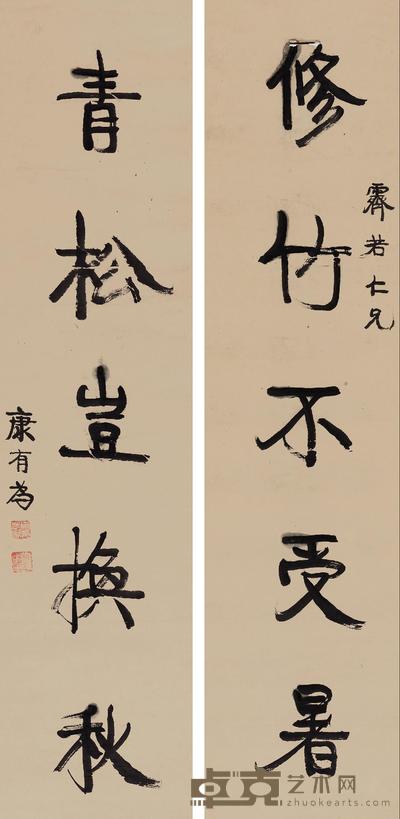 修竹不受暑
霽若仁兄
青松豈換秋
康有為
卓克艺术网
zhuokearts.com